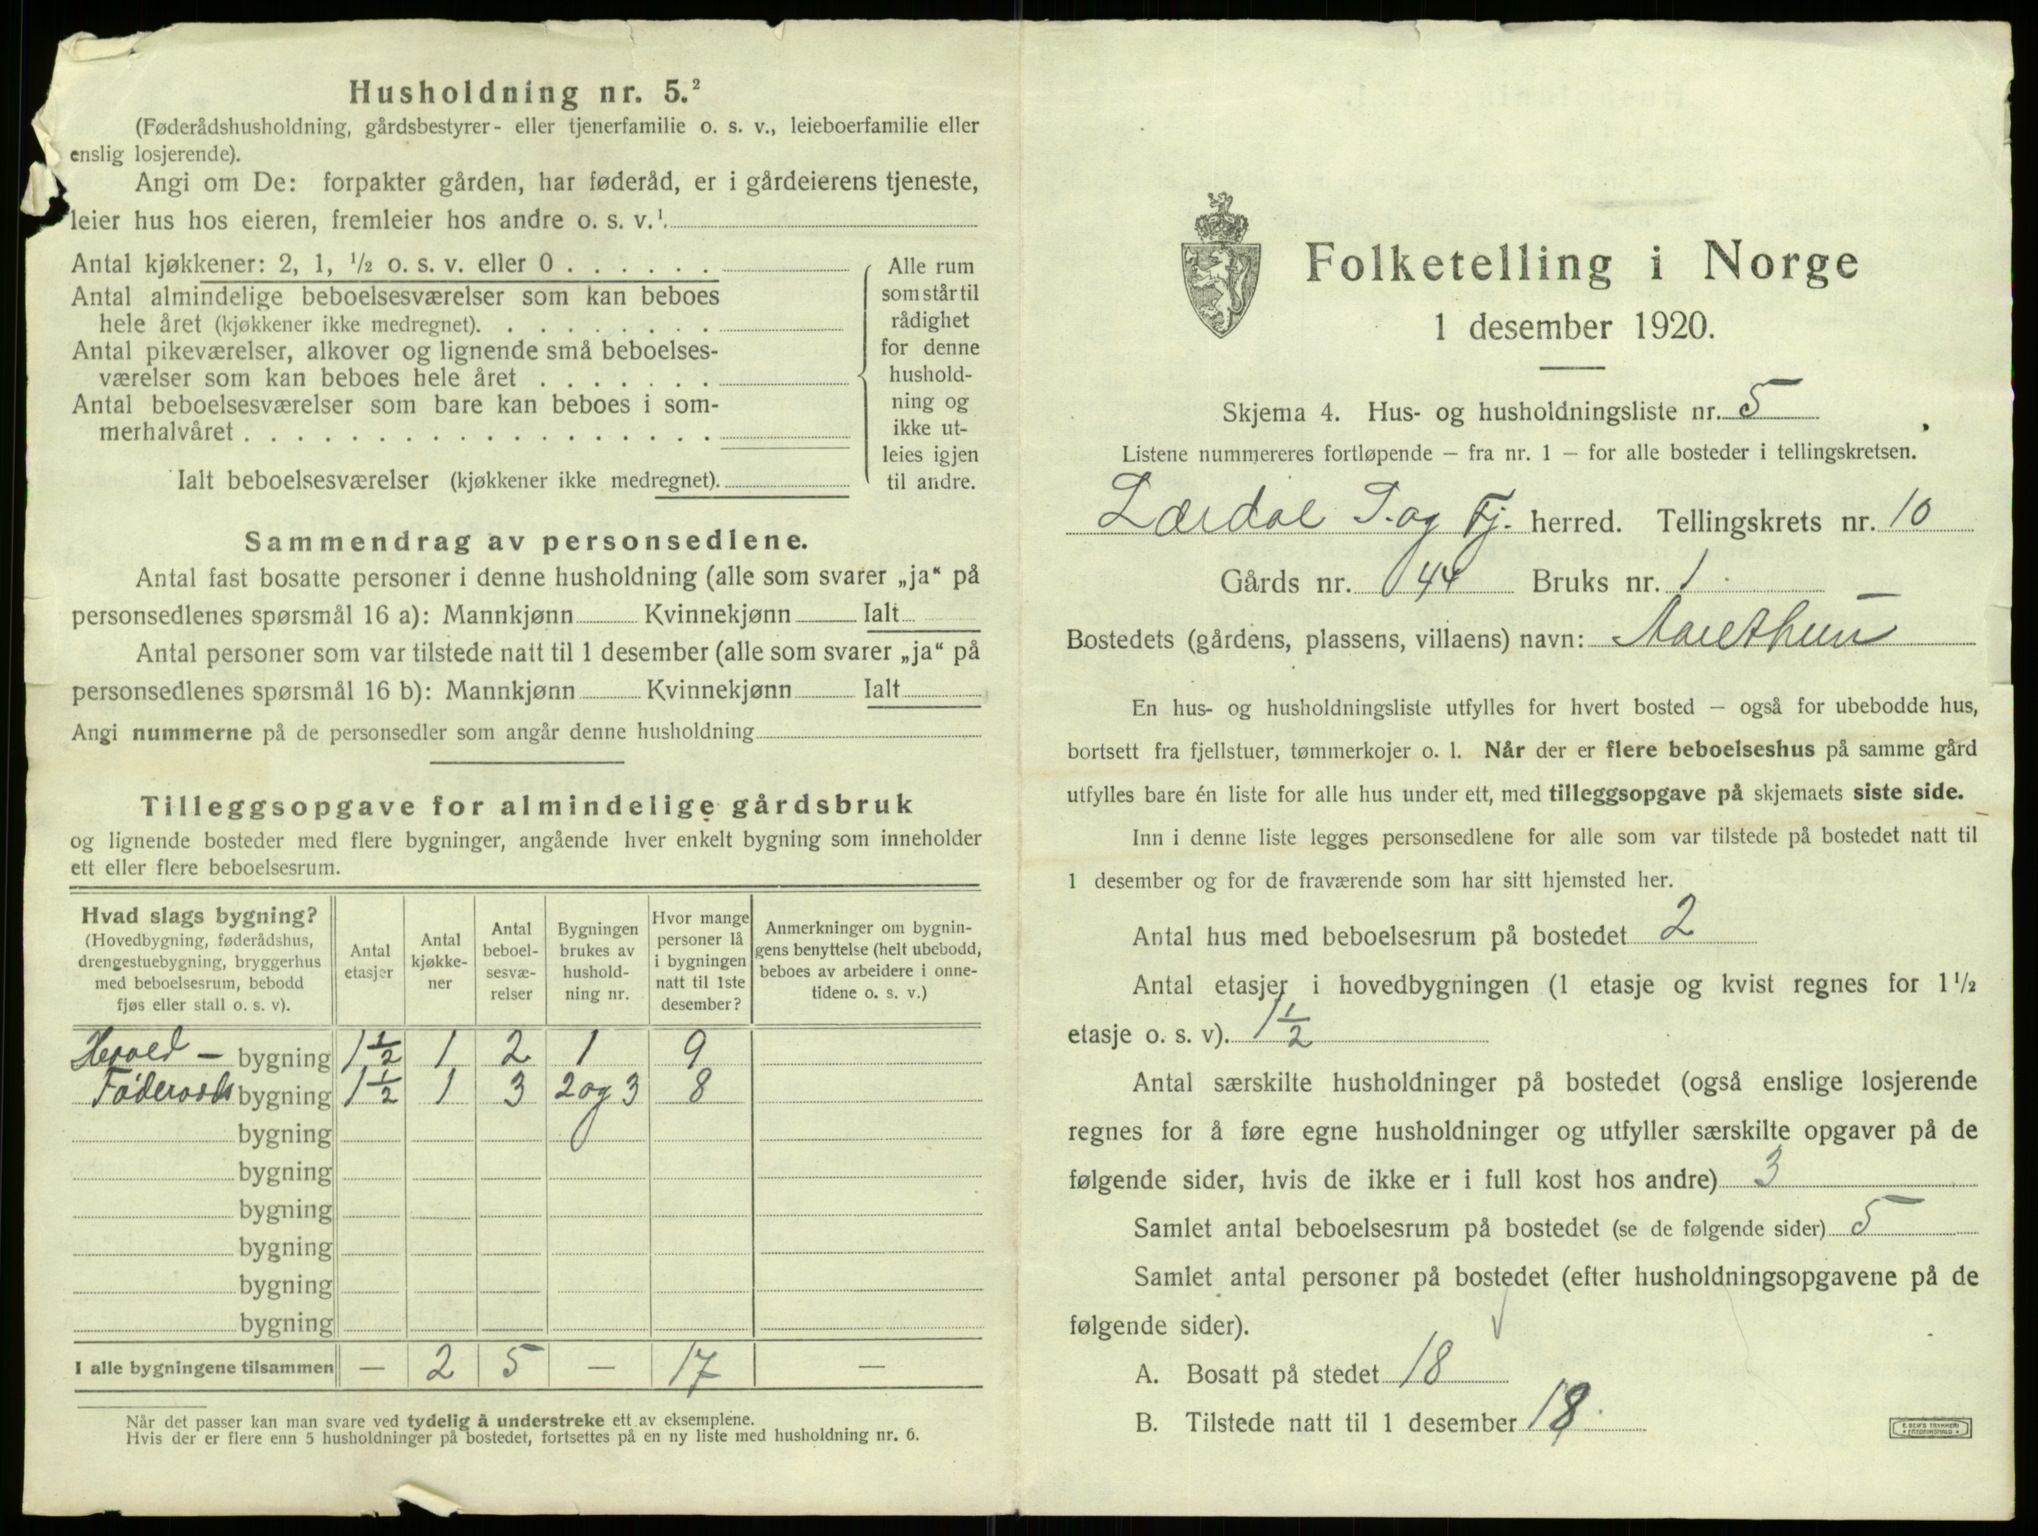 Husholdning nr. 5.²
(Føderådshusholdning, gårdsbestyrer- eller tjenerfamilie o. s. v., leieboerfamilie eller
enslig losjerende).
Angi om De: forpakter gården, har føderåd, er i gårdeierens tjeneste,
leier hus hos eieren, fremleier hos andre o. s. v.¹.
Antal kjøkkener: 2, 1, ½ o. s. v. eller 0 . . . . . .
Antal almindelige beboelsesværelser som kan beboes
hele året (kjøkkener ikke medregnet). . . . . . . . .
Antal pikeværelser, alkover og lignende små beboelses-
værelser som kan beboes hele året . . . . . . .
Antal beboelsesværelser som bare kan beboes i som-
merhalvåret . . . . . . . . . . . . . . . . . .
Ialt beboelsesværelser (kjøkkener ikke medregnet).
Alle rum
som står til
rådighet
for denne
hushold-
ning og
ikke ut-
leies igjen
til andre.
Sammendrag av personsedlene.
Antal fast bosatte personer i denne husholdning (alle som svarer „ja“ på
personsedlenes spørsmål 16 a): Mannkjønn Kvinnekjønn Ialt
Antal personer som var tilstede natt til 1 desember (alle som svarer „ja“ på
personsedlenes spørsmål 16 b): Mannkjønn Kvinnekjønn Ialt
Angi nummerne på de personsedler som angår denne husholdning
Tilleggsopgave for almindelige gårdsbruk
og lignende bosteder med flere bygninger, angående hver enkelt bygning som inneholder
ett eller flere beboelsesrum.
Hvad slags bygning?
(Hovedbygning, føderådshus,
drengestuebygning, bryggerhus
med beboelsesrum, bebodd
fjøs eller stall o. s. v).
Antal
etasjer
Antal
kjøkke-
ner
Antal
beboel-
sesvæ-
relser
Bygningen
brukes av
hushold-
ning nr.
Hvor mange
personer lå
i bygningen
natt til 1ste
desember?
Anmerkninger om bygnin-
gens benyttelse (helt ubebodd,
beboes av arbeidere i onne-
tidene o. s. v.)
Hoved – bygning 1½ 1 2 1 9
Føderaads bygning 1½ 1 3 2 og 3 8
bygning
bygning
bygning
bygning
bygning
bygning
I alle bygningene tilsammen — 2 5 — 17 —
Når det passer kan man svare ved tydelig å understreke ett av eksemplene.
Hvis der er flere enn 5 husholdninger på bostedet, fortsettes på en ny liste med husholdning nr. 6.
Folketelling i Norge
1 desember 1920.
Skjema 4. Hus- og husholdningsliste nr. 5
Listene nummereres fortløpende – fra nr. 1 – for alle bosteder i tellingskretsen.
Lærdal S. og Fj. herred. Tellingskrets nr. 10
Gårds nr. 44 Bruks nr. 1.
Bostedets (gårdens, plassens, villaens) navn:
En hus- og husholdningsliste utfylles for hvert bosted – også for ubebodde hus,
bortsett fra fjellstuer, tømmerkojer o. l. Når der er flere beboelseshus på samme gård
utfylles bare én liste for alle hus under ett, med tilleggsopgave på skjemaets siste side.
Inn i denne liste legges personsedlene for alle som var tilstede på bostedet natt til
1 desember og for de fraværende som har sitt hjemsted her.
Antal hus med beboelsesrum på bostedet 2
Antal etasjer i hovedbygningen (1 etasje og kvist regnes for 1½
etasje o. s. v). 1½
Antal særskilte husholdninger på bostedet (også enslige losjerende
regnes for å føre egne husholdninger og utfyller særskilte opgaver på de
følgende sider, hvis de ikke er i full kost hos andre) 3
Samlet antal beboelsesrum på bostedet (se de følgende sider) 5
Samlet antal personer på bostedet (efter husholdningsopgavene på de
følgende sider).
A. Bosatt på stedet 18
B. Tilstede natt til 1 desember 18